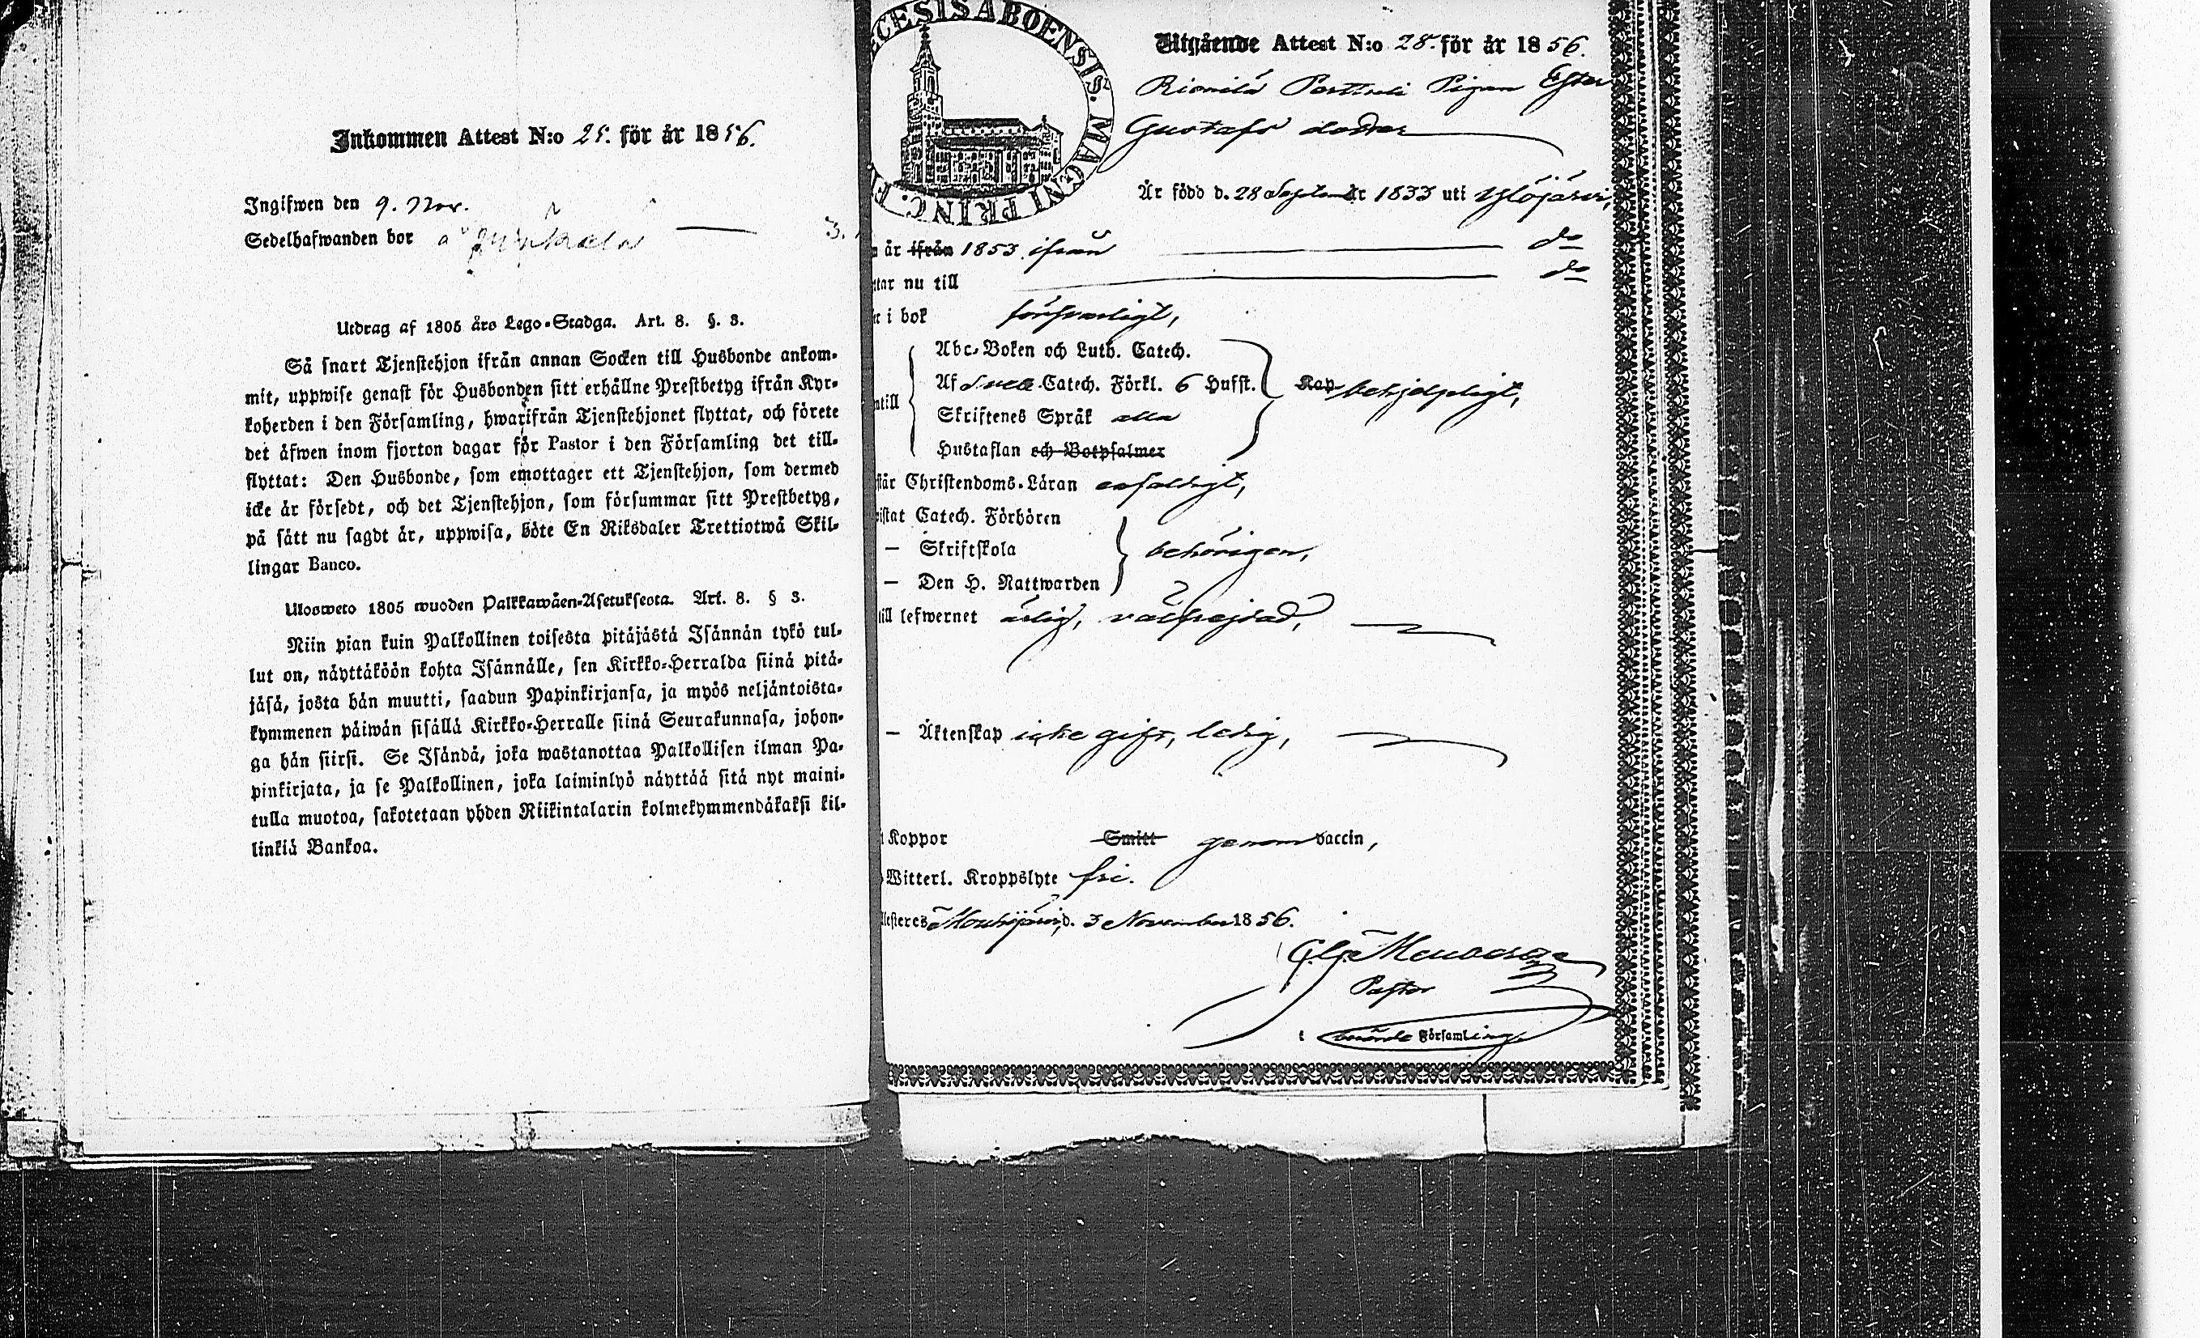 Inkommen Attest N:o 25. för år 1856.
Ingifwen den 9. Nov.
Sedelhafwanden bor å
3.
Utdrag af 1805 års Lego-Stadga. Art. 8. §. 3.
Så snart Tjenstehjon ifrån annan Socken till Husbonde ankom-
mit, uppwise genast för Husbonden sitt erhållne Prestbetyg ifrån Kyr-
koherden i den Församling, hwarifrån Tjenstehjonet flyttat, och förete
det äfwen inom fjorton dagar för Pastor i den Församling det till-
flyttat: Den Husbonde, som emottager ett Tjenstehjon, som dermed
icke är försedt, och det Tjenstehjon, som försummar sitt Prestbetyg,
på sätt nu sagdt är, uppwisa, böte En Riksdaler Trettiotwå Skil-
lingar Banco.
Ulosweto 1805 wuoden Palkkawäen-Asetuksesta. Art. 8. § 3.
Niin pian kuin Palkollinen toisesta pitäjästä Isännän tykö tul-
lut on, näyttäköön kohta Isännälle, sen Kirkko-Herralda siinä pitä-
jäsä, josta hän muutti, saadun Papinkirjansa, ja myös neljäntoista-
kymmenen päiwän sisällä Kirkko-Herralle siinä Seurakunnasa, johon-
ga hän siirsi. Se Isändä, joka wastanottaa Palkollisen ilman Pa-
pinkirjata, ja se Palkollinen, joka laiminlyö näyttää sitä nyt maini-
tulla muotoa, sakotetaan yhden Riikintalarin kolmekymmendäkaksi kil-
linkiä Bankoa.
ECESIS ABOENSIS. MAGNI PRINC. F
Utgående Attest N:o 28. för år 1856.
Pigan Ester
Gustafs dotter
Är född d. 28 September 1833 uti Ylöjärvi,
år ifrån 1853. ifrån do
tar nu till do
i bok försvarligt,
Abc-Boken och Luth. Catech.
Af Sveb. Catech. Förkl. 6 Hufst. Kap behjelpligt,
ntill
Skriftenes Språk alla
Hustaflan och Botpsalmer
står Christendoms-Läran enfaldigt,
istat Catech. Förhören
— Skriftskola behörigen,
— Den H. Nattwarden
till lefwernet ärlig, välfrejdad,
— Äktenskap icke gift, ledig,
Koppor Smitt genom vaccin,
Witterl. Kroppslyte fri.
Mouhijärvi, d. 3 November 1856.
Pastor
i Församling.